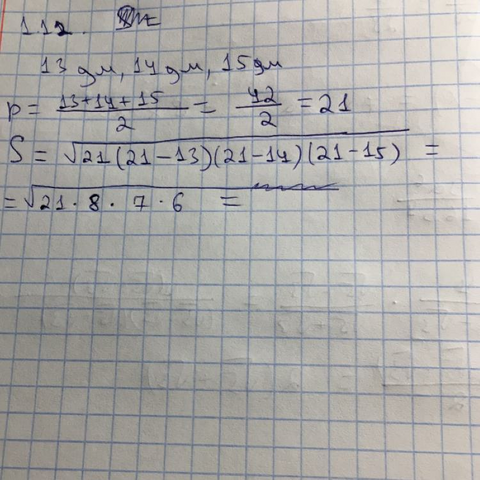 112.
13 дм, 14 дм, 15 дм
p = \frac{13+14+15}{2} = \frac{42}{2} = 21
S = √21(21-13)(21-14)(21-15) =
= √21·8·7·6 =